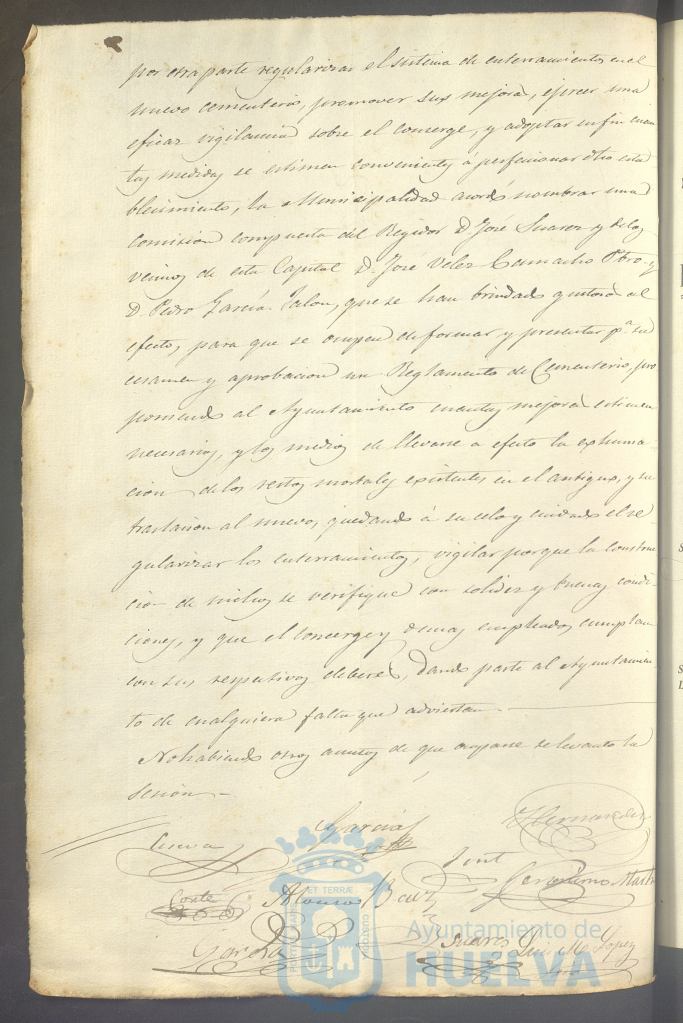 por otra parte regularizar el sistema de enterramientos en el
nuevo cementerio, promover sus mejoras, ejercer una
eficaz vigilancia sobre el conserge, y adoptar en fin cuan
tas medidas se estimen convenientes a perfeccionar dho esta
blecimiento, la Municipalidad acordó nombrar una
comision compuesta del Regidor D. José Suarez y de los
vecinos de esta Capital D. José Velez Camacho Pbro. y
D. Pedro García Jalon, que se han brindado gustosos al
efecto, para que se ocupen de formar y presentar pª su
ecsamen y aprobacion un Reglamento de Cementerio, pro
poniendo al Ayuntamiento cuantas mejoras estimen
necesarias, y los medios de llevarse a efecto la exhuma-
cion de los restos mortales existentes en el antiguo, y su
traslacion al nuevo, quedando á su celo y cuidado el re
gularizar los enterramientos, vigilar porque la construc
cion de nichos se verifique con solidez y buenas condi-
ciones, y que el concerge y demas empleados cumplan
con sus respectivos deberes, dando parte al Ayuntamien
to de cualquiera falta que adviertan.
No habiendo otros asuntos de que ocuparse se levantó la
sesion.
García Hernandez
Cueva
Gerónimo Martin
Conte Alonso
García Suarez Luis Mª Lopez
Ayuntamiento de
HUELVA